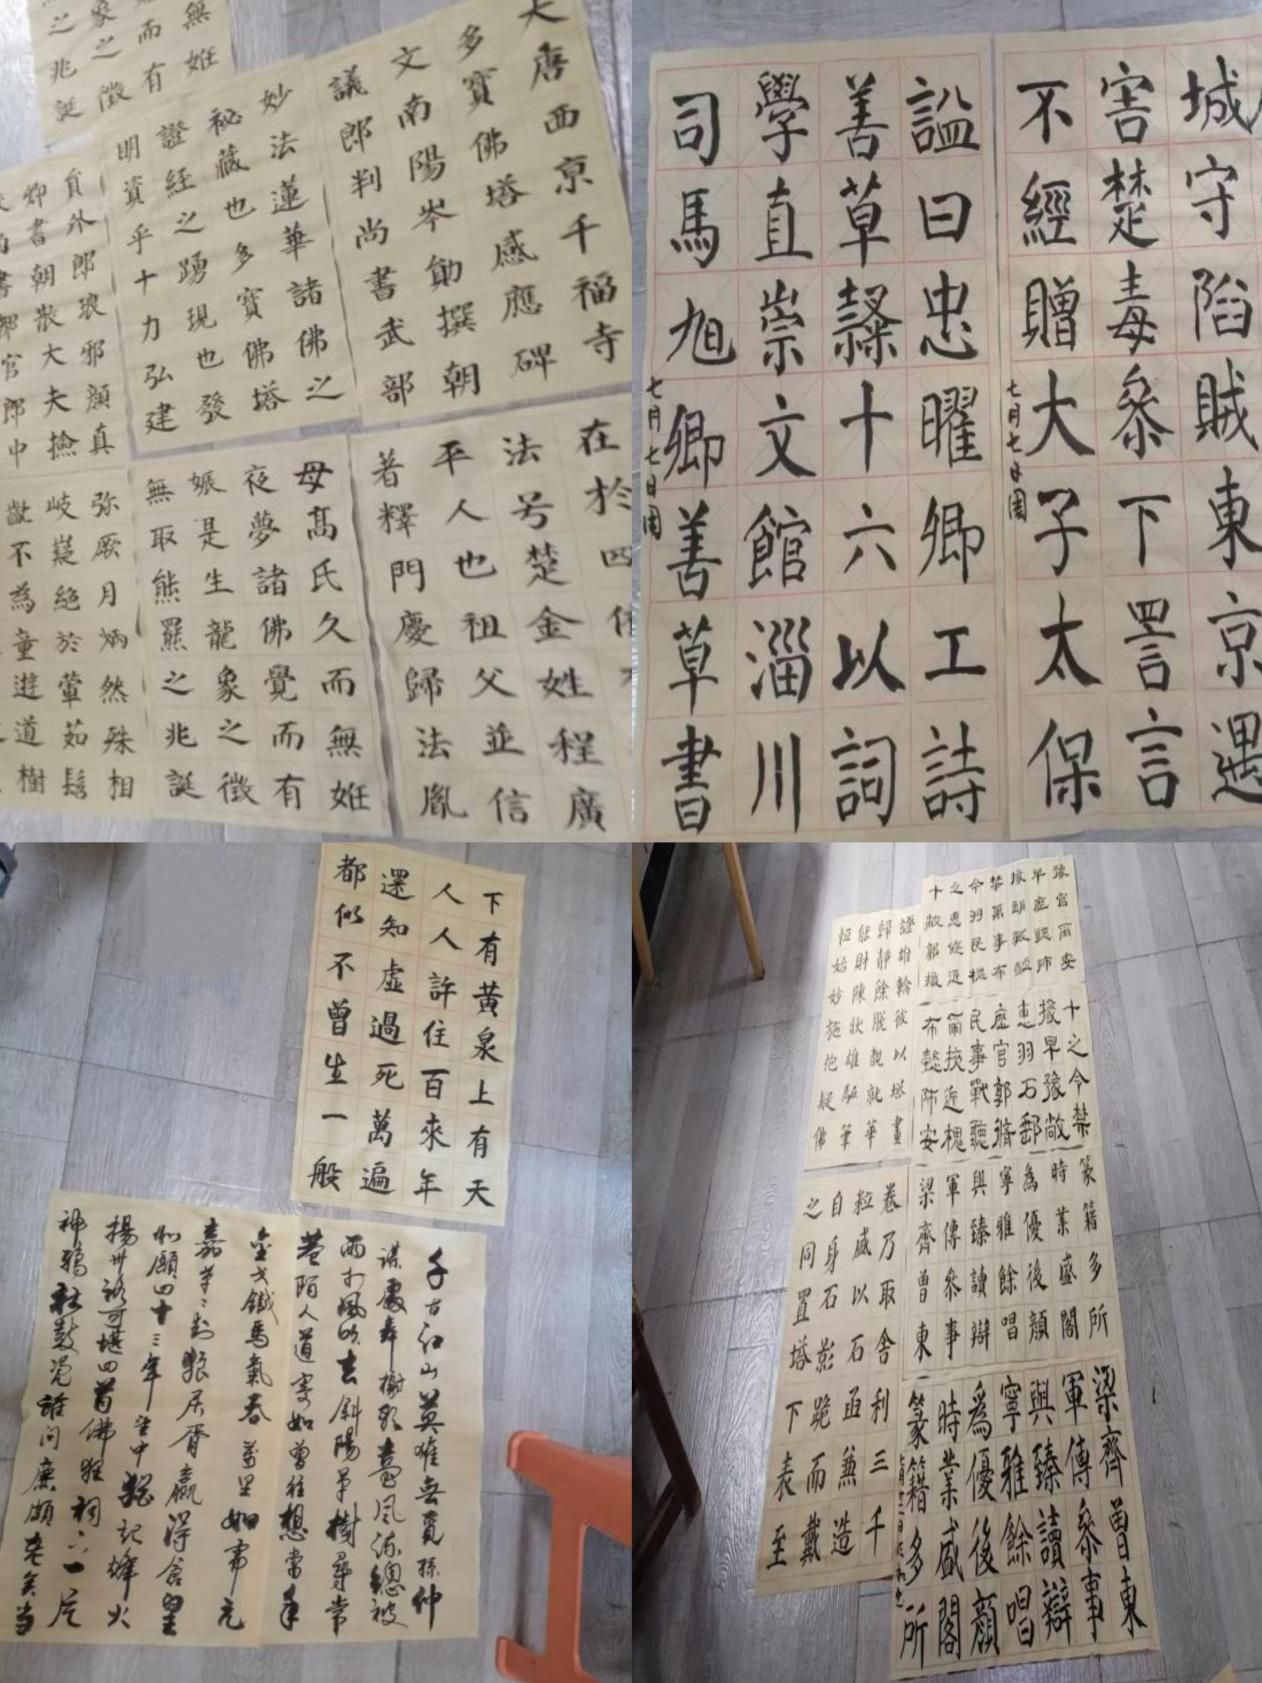 無姙
而有
象之徵
之兆誕
大唐西京千福寺
多寶佛塔感應碑
文南陽岑勛撰朝
議郎判尚書武部
妙法蓮華諸佛之
秘藏也多寶佛塔
證經之踴現也發
明資乎十力弘建
員外郎琅邪顏真
卿書朝散大夫撿
在於四
法号楚金姓程廣
平人也祖父並信
著釋門慶歸法胤
母髙氏久而無姙
夜夢諸佛覺而有
娠是生龍象之徵
無取熊羆之兆誕
弥厥月炳然殊相
岐嶷絕於葷茹髫
齔不為童遊道樹
城守陷賊東京遇
害楚毒叅下詈言
不經贈大子太保
七月七日周
諡曰忠曜卿工詩
善草隸十六以詞
學直崇文館淄川
司馬旭卿善草書
七月七日周
下有黃泉上有天
人人許住百來年
還知虛過死萬遍
都似不曾生一般
千古江山英雄無覓孫仲
謀處舞榭歌臺風流總被
雨打風吹去斜陽草樹尋常
巷陌人道寄奴曾住想當年
金戈鐵馬氣吞萬里如虎元
嘉草〻封狼居胥贏得倉皇
北顧四十三年望中猶記烽火
揚州路可堪回首佛狸祠下一片
神鴉社鼓憑誰問廉頗老矣尚
十之令禁
援早豫敞
證雄輪彼以塔畫
歸靜餘脫親就華
能財陳狀雄驅筆
篆籍多所
時業盛閣
為優後顏
寧雅餘唱
與臻讀辯
軍傳叅事
梁齊曹東
卷乃取舍利三千
粒盛以石函兼造
自身石影跪而戴
之同置塔下表至
梁齊曹東
軍傳叅事
與臻讀辯
寧雅餘唱
爲優後顏
時業咸閣
篆籍多所